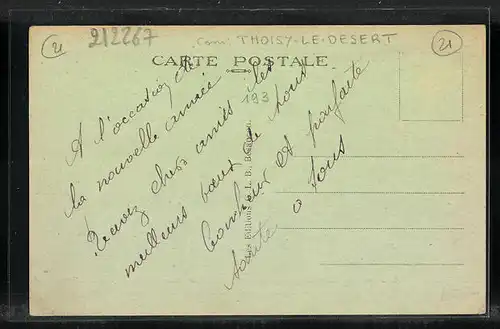 21
212267
Com: THOISY-LE-DESERT
21
CARTE POSTALE
193
A l'occasion de
la nouvelle année
Recevez chers amis les
meilleurs vœux de nous
bonheur et parfaite
Santé à tous
Les Editions L. B.,